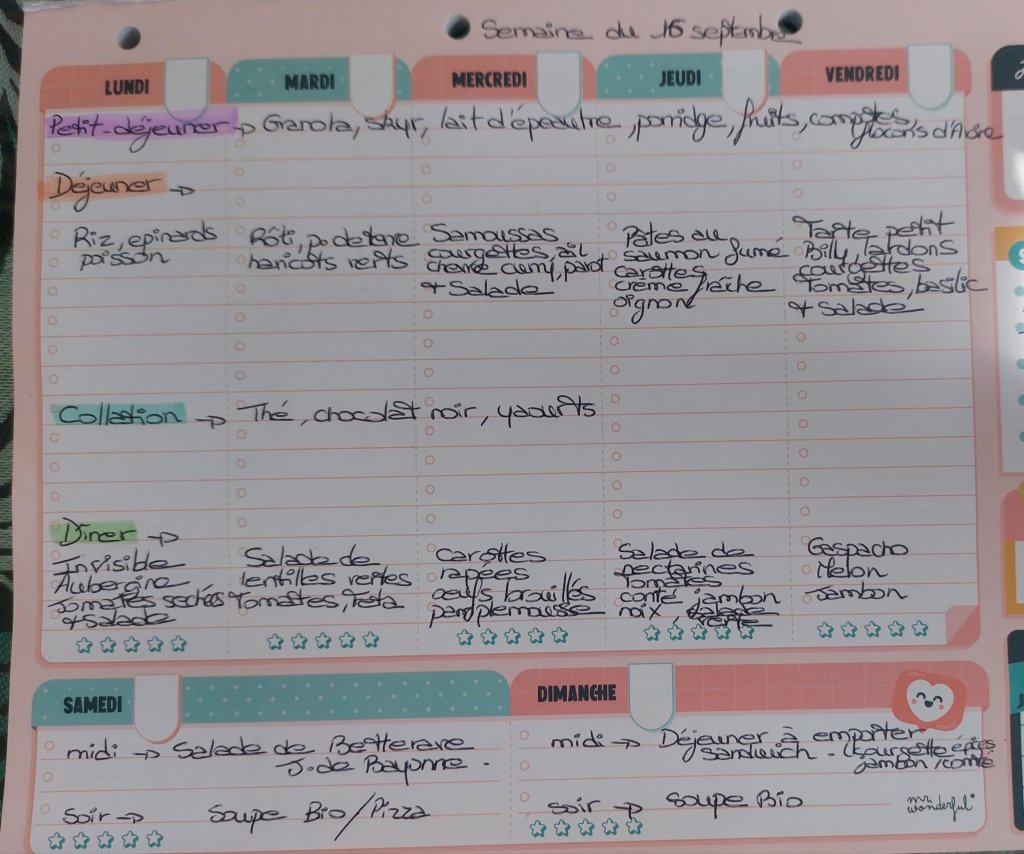 Semaine du 16 septembre
LUNDI
MARDI
MERCREDI
JEUDI
VENDREDI
Petit-déjeuner → Granola, skyr, lait d'épeautre, porridge, fruits, compotes,
flocons d'Avoine
Déjeuner →
Riz, epinards
poisson
Rôti, po de terre
haricots verts
Samoussas
courgettes, ail
chèvre curry, parot
+ Salade
Pâtes au
saumon fumé
carottes
crème fraîche
oignon
Tarte petit
Billy, lardons
courgettes
Tomates, basilic
+ Salade
Collation → Thé, chocolat noir, yaourts
Dîner →
Invisible
Aubergine
tomates sechés
+ Salade
Salade de
lentilles vertes
Tomates, Feta
Carottes
rapées
oeufs brouillés
pamplemousse
Salade de
nectarines
Tomates
comté jambon
noix, salade
verte
Gaspacho
Melon
Jambon
SAMEDI
midi → Salade de Betterave
J. de Bayonne.
soir → Soupe Bio/Pizza
DIMANCHE
midi → Déjeuner à emporter
sandwich - (courgette épices
jambon/comté
soir → Soupe Bio
mr.
wonderful*